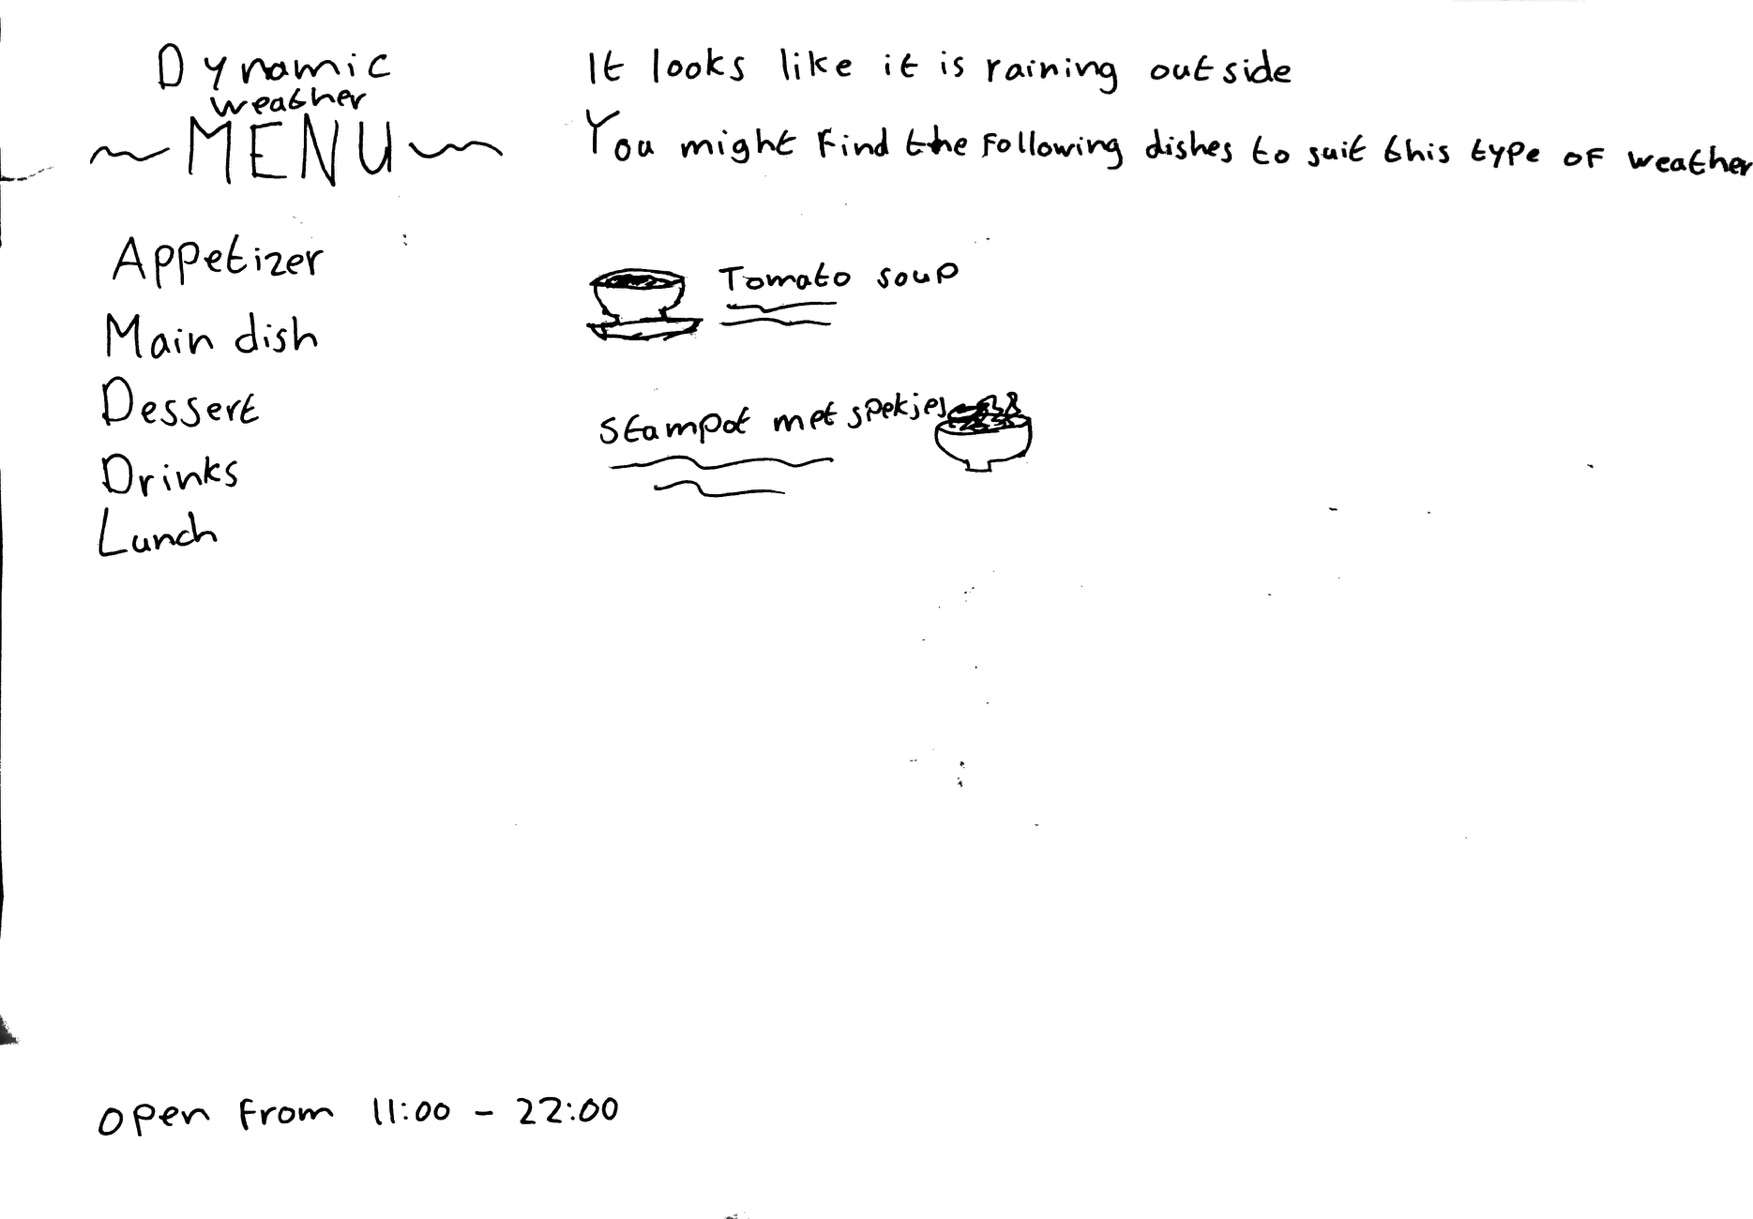 Dynamic
weather
~MENU~
Appetizer
Main dish
Dessert
Drinks
Lunch
Open from 11:00 - 22:00
It looks like it is raining outside
You might find the following dishes to suit this type of weather
Tomato soup
Stampot met spekjes